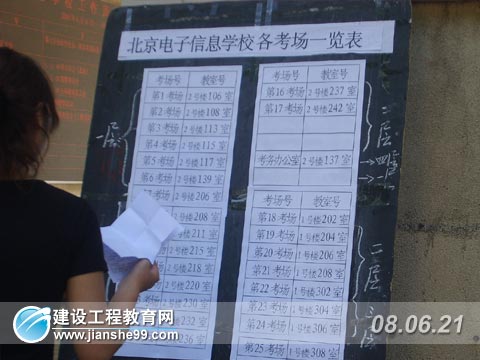 北京电子信息学校各考场一览表
考场号 教室号
第1考场 2号楼106室
第2考场 2号楼108室
第3考场 2号楼113室
第4考场 2号楼115室
第5考场 2号楼117室
第6考场 2号楼139室
考场 2号楼206室
208室
211室
215室
218室
220室
230室
232室
236室
一层
考场号 教室号
第16考场 2号楼237室
第17考场 2号楼242室
考务办公室 2号楼137室
二层
考场号 教室号
第18考场 1号楼202室
第19考场 1号楼204室
第20考场 1号楼206室
第21考场 1号楼208室
第22考场 1号楼302室
第23考场 1号楼304室
第24考场 1号楼306室
第25考场 1号楼308室
二层
建设工程教育网
www.jianshe99.com
08.06.21